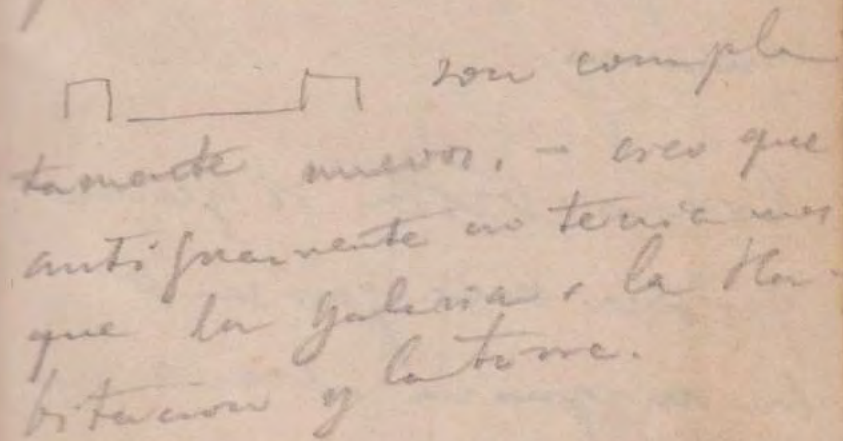 son comple
tamente nuevos. - creo que
antiguamente no tenia mas
que la Galeria, la Ha-
bitacion y la torre.